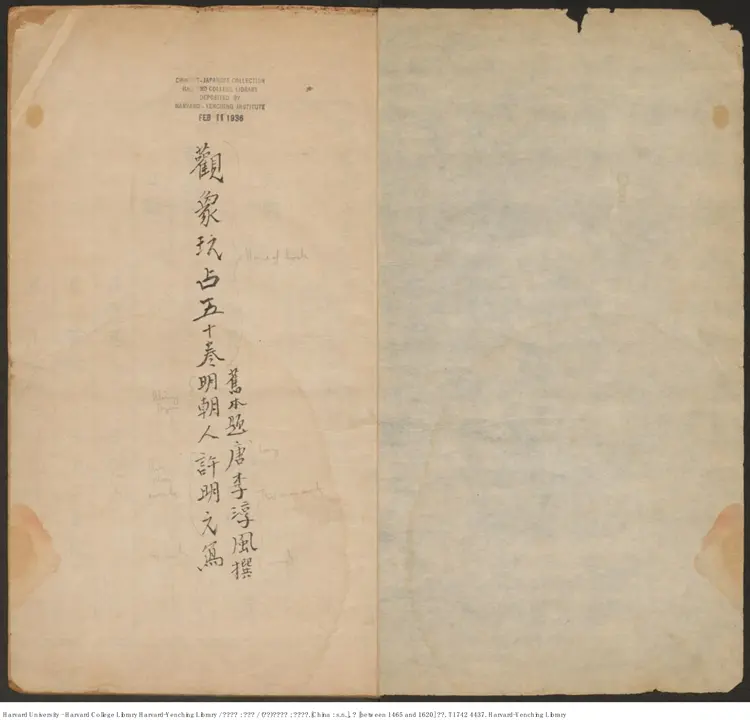 CHINESE-JAPANESE COLLECTION
HARVARD COLLEGE LIBRARY
DEPOSITED BY
HARVARD-YENCHING INSTITUTE
FEB 11 1936
舊本題唐李淳風撰
觀象玩占五十卷明朝人許明元寫
Name of book
Harvard University - Harvard College Library Harvard-Yenching Library / ???? : ??? / (???)???? ; ????. [China : s.n.], ? [between 1465 and 1620] ??. T1742 4437. Harvard-Yenching Library